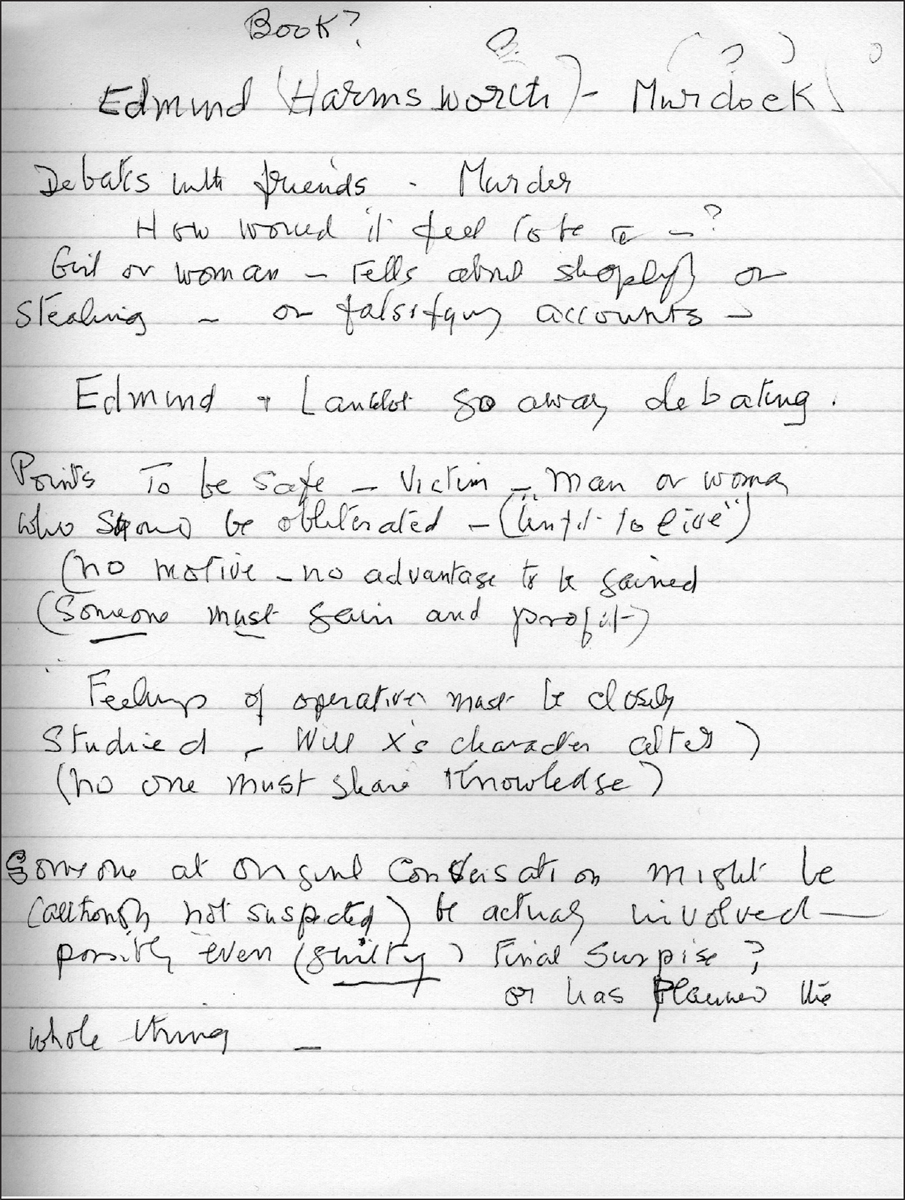 Book?
( ? )
Edmund (Harmsworth) - Murdock
Debates with friends - Murder
How would it feel to be a - ?
Girl or woman - Tells about shoplift or
Stealing - or falsifying accounts -
Edmund + Lancelot go away debating.
Points To be safe - Victim - man or woman
who should be obliterated - ("Unfit to live")
(no motive - no advantage to be gained
(Someone must gain and profit)
Feelings of operative must be closely
Studied - Will X's character alter)
(no one must share knowledge)
Someone at original conversation might be
(although not suspected) be actually involved -
possibly even (guilty) Final Surpise?
or has planned the
whole thing -